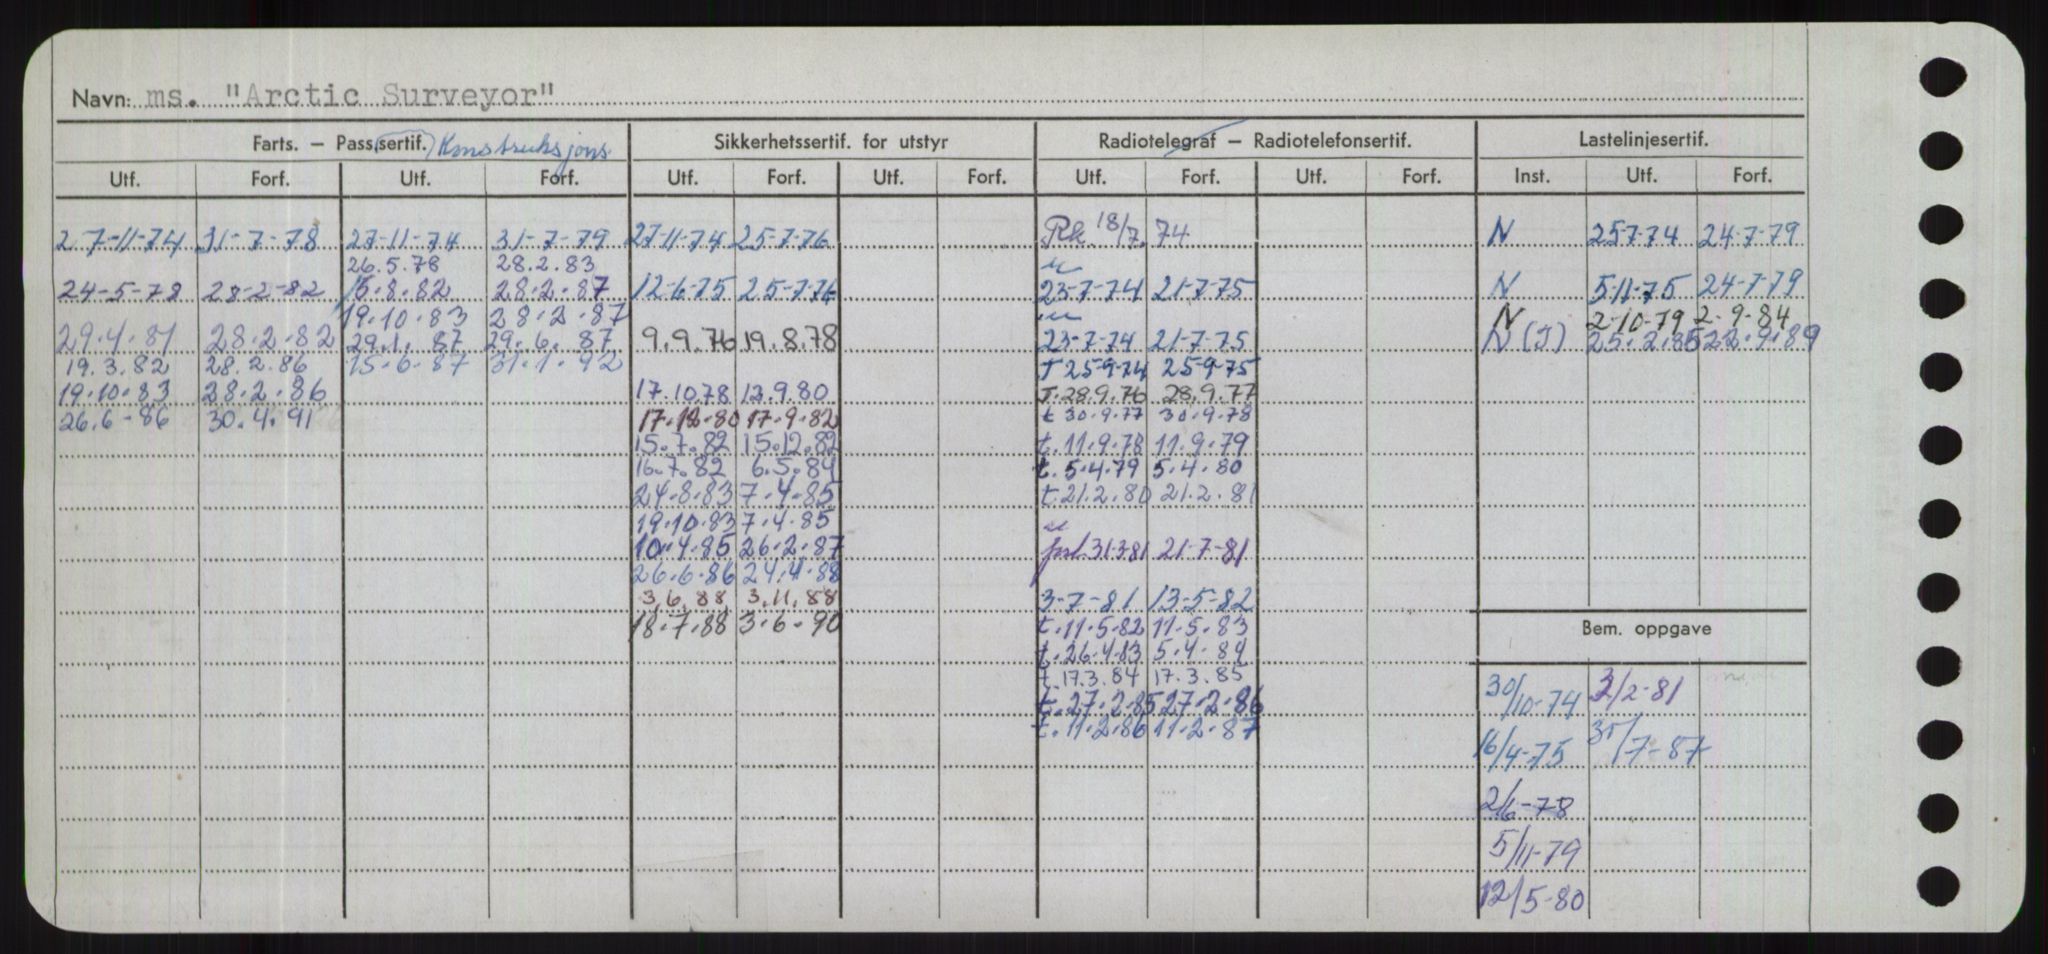 Navn: ms. "Arctic Surveyor"
Farts. – Pass(sertif.) Konstruksjons Sikkerhetssertif. for utstyr Radiotelegraf – Radiotelefonsertif. Lastelinjesertif.
Utf. Forf. Utf. Forf. Utf. Forf. Utf. Forf. Utf. Forf. Utf. Forf. Inst. Utf. Forf.
27-11-74 31-7-78 27-11-74 31-7-79 27-11-74 25-7-76 Rk. 18/7. 74 N 25-7-74 24-7-79
26.5.78 28.2.83
24-5-78 28-2-82 15.8.82 28.2.87 12-6-75 25-7-76 23-7-74 21-7-75 N 5-11-75 24-7-79
19.10.83 28.2.87 N 2-10-79 2-9-84
29.4.81 28.2.82 29.1.87 29.6.87 9.9.76 19.8.78 23-7-74 21-7-75 N (J) 25.2.85 22.9.89
19.3.82 28.2.86 15.6.87 31.1.92 T 25-9-74 25-9-75
19.10.83 28.2.86 17.10.78 12.9.80 T. 28.9.76 28.9.77
26.6-86 30.4.91 17.12.80 17.9.82 t 30.9.77 30.9.78
15.7.82 15.12.82 t. 11.9.78 11.9.79
16.7.82 6.5.84 t. 5.4.79 5.4.80
24.8.83 7.4.85 t. 21.2.80 21.2.81
19.10.83 7.4.85
10.4.85 26.2.87 forl. 31-3-81 21-7-81
26.6.86 24.4.88
3.6.88 3.11.88 3-7-81 13-5-82
18.7.88 3.6.90 t. 11.5.82 11.5.83 Bem. oppgave
t. 26.4.83 5.4.84
t. 17.3.84 17.3.85 30/10-74 3/2-81
t. 27.2.85 27.2.86
t. 11.2.86 11.2.87 16/4-75 31/7-87
2/6-78
5/11-79
12/5-80